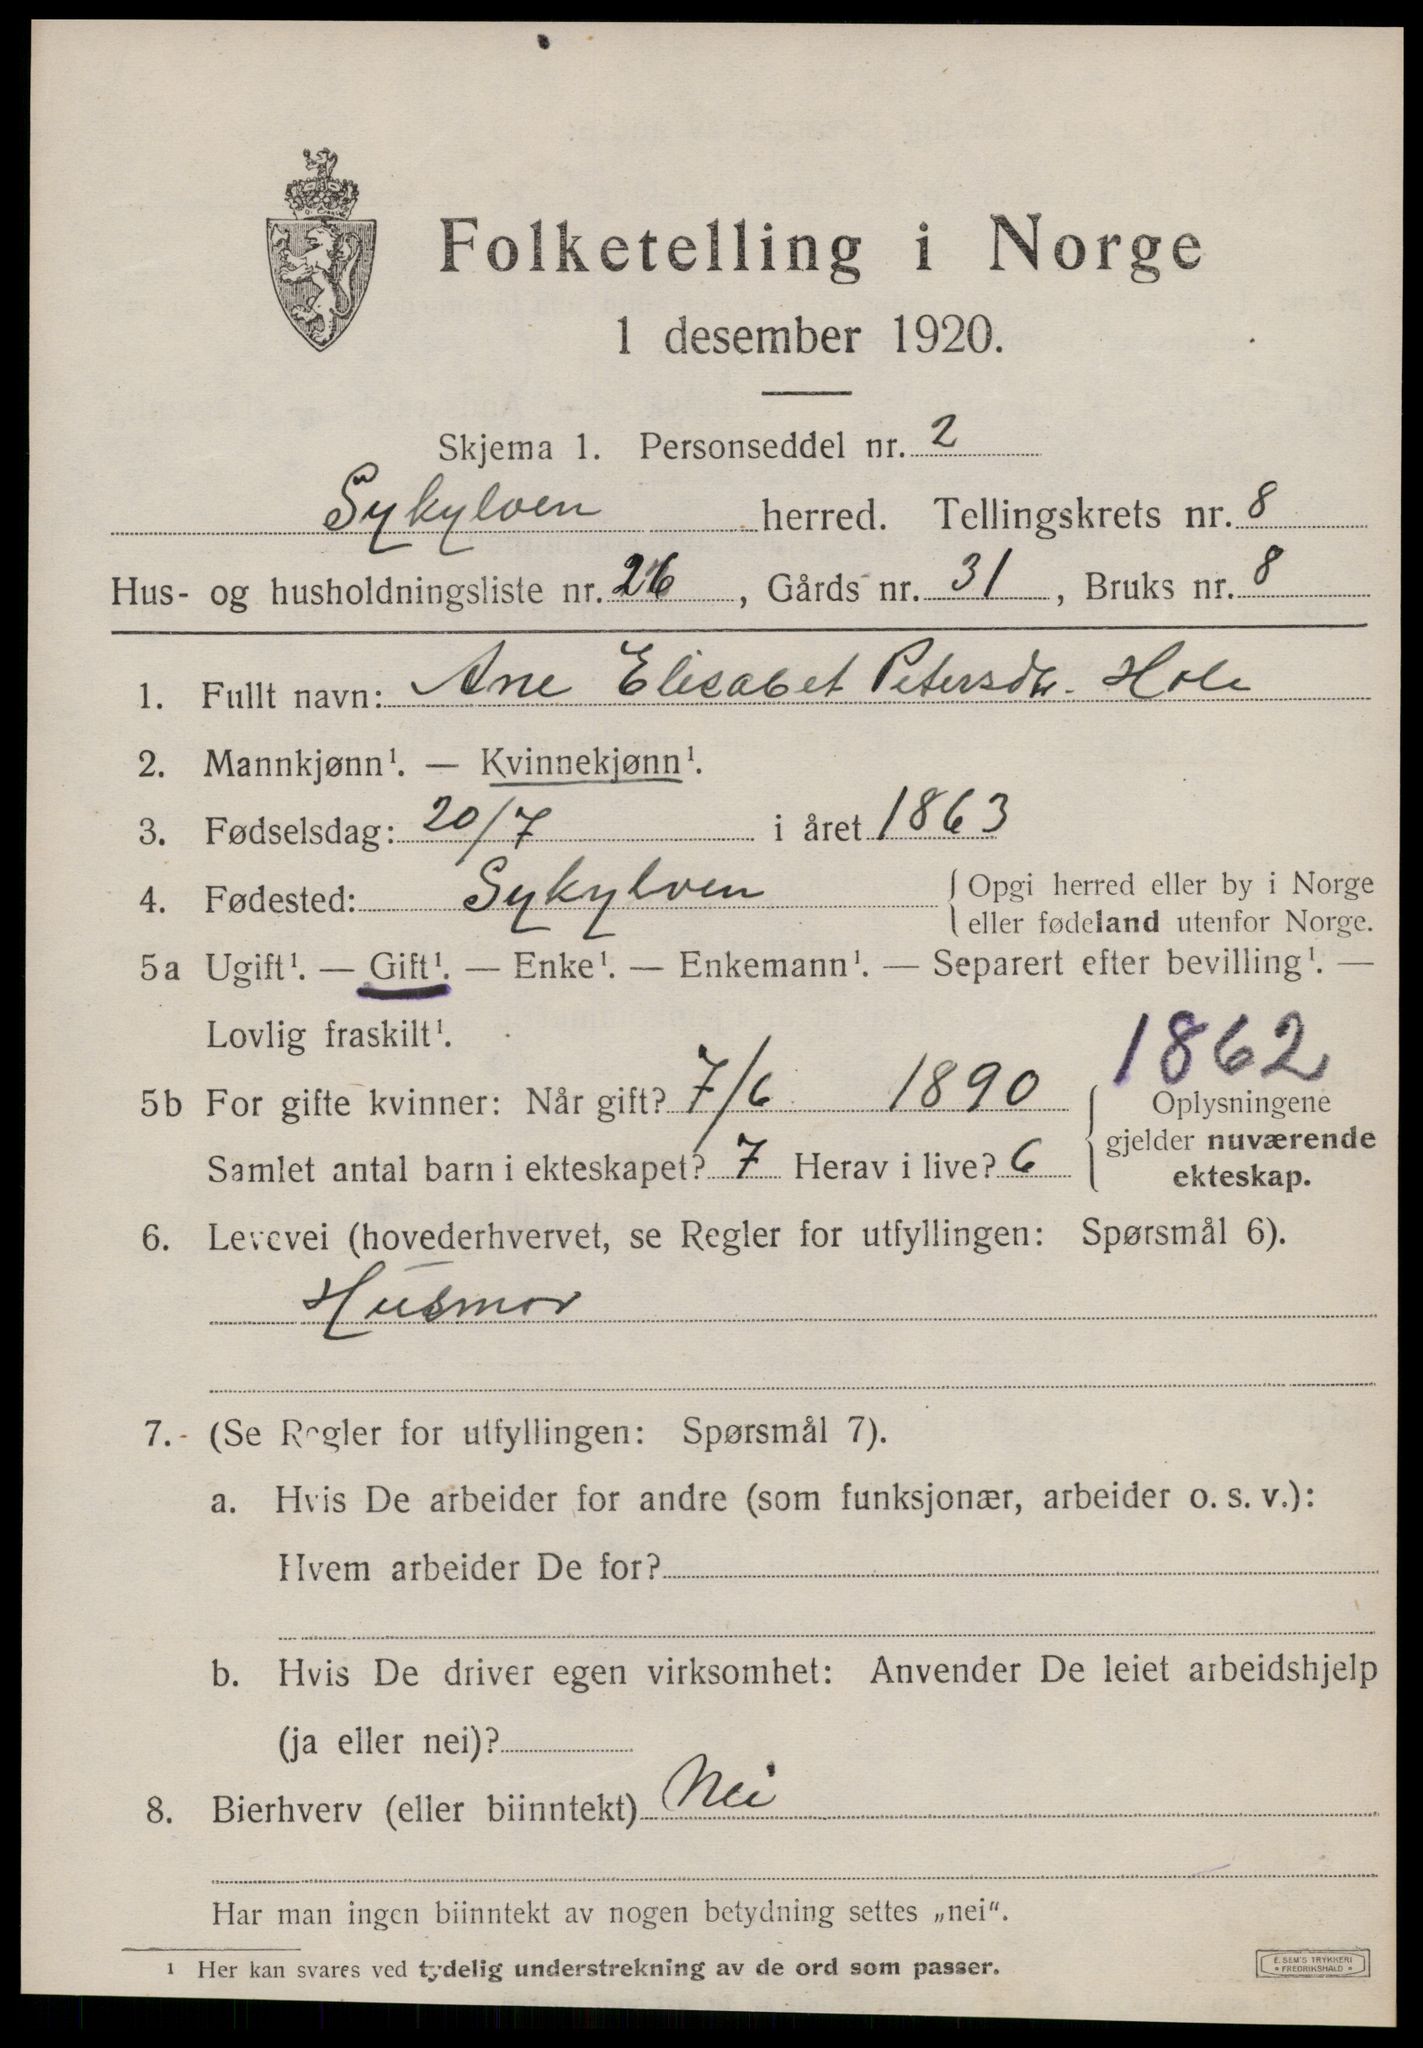 Folketelling i Norge
1 desember 1920.
Skjema 1. Personseddel nr. 2
Sykylven herred. Tellingskrets nr. 8
Hus- og husholdningsliste nr. 26, Gårds nr. 31, Bruks nr. 8
1. Fullt navn: Ane Elisabet Petersdtr. Hole
2. Mannkjønn¹. — Kvinnekjønn¹.
3. Fødselsdag: 20/7 i året 1863
4. Fødested: Sykylven { Opgi herred eller by i Norge
eller fødeland utenfor Norge.
5a Ugift¹. — Gift¹. — Enke¹. — Enkemann¹. — Separert efter bevilling¹. —
Lovlig fraskilt¹.
1862
5b For gifte kvinner: Når gift? 7/6 1890 { Oplysningene
gjelder nuværende
Samlet antal barn i ekteskapet? 7 Herav i live? 6
ekteskap.
6. Levevei (hovederhvervet, se Regler for utfyllingen: Spørsmål 6).
Husmor
7. (Se Regler for utfyllingen: Spørsmål 7).
a. Hvis De arbeider for andre (som funksjonær, arbeider o. s. v.):
Hvem arbeider De for?
b. Hvis De driver egen virksomhet: Anvender De leiet arbeidshjelp
(ja eller nei)?
8. Bierhverv (eller biinntekt) Nei
Har man ingen biinntekt av nogen betydning settes „nei“.
¹ Her kan svares ved tydelig understrekning av de ord som passer.
E. SEM'S TRYKKERI
• FREDRIKSHALD •